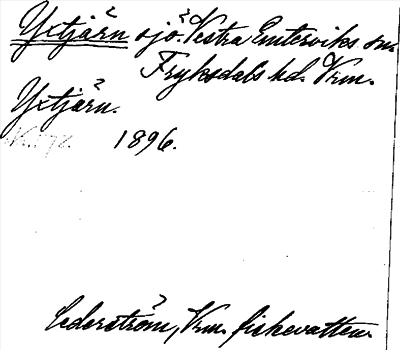 Yxtjärn sjö. Västra Emterviks sn.
Fryksdals hd. Vrm.
Yxtjärn.
1896.
Cederström, Vrm. fiskevatten.